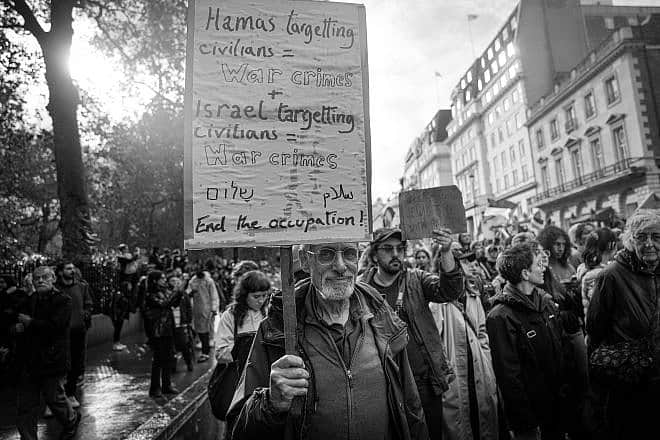 Hamas targetting
civilians =
War crimes
+
Israel targetting
civilians =
War crimes
שלום سلام
End the occupation!